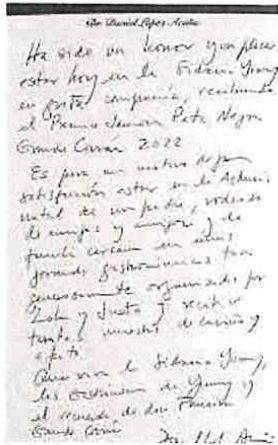 Por Daniel López Acuña
Ha sido un honor y un placer
estar hoy en la Sidrería Yumay
en grata compañía, recibiendo
el Premio Jamón Pata Negra
Grande Covián 2022
Es para un motivo de gran
satisfacción estar en la Asturias
natal de mi padre, rodeado
de amigos y amigas y de
familia cercana en unas
jornadas gastronómicas tan
organizadas por
y recibir
tantas muestras de cariño y
afecto.
Que viva la Sidrería Yumay,
las de Yumay y
el recuerdo de don Francisco
Grande Covián